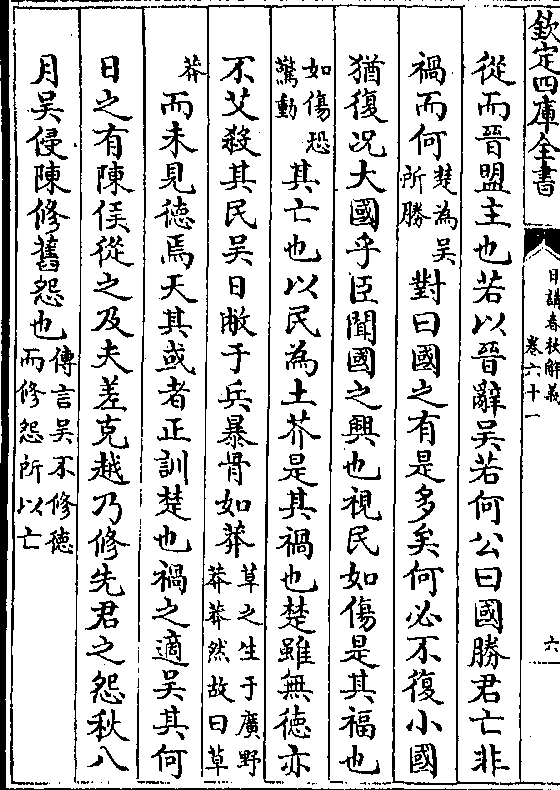 欽定四庫全書
日講春秋解義
卷六十一
六
從而晉盟主也若以晉辭吳若何公曰國勝君亡非
禍而何
楚為吳
所勝
對曰國之有是多矣何必不復小國
猶復况大國乎臣聞國之興也視民如傷是其福也
如傷恐
驚動
其亡也以民為土芥是其禍也楚雖無德亦
不艾殺其民吳日敝于兵暴骨如莽
草之生于廣野
莽莽然故曰草
莽
而未見德焉天其或者正訓楚也禍之適吳其何
日之有陳侯從之及夫差克越乃修先君之怨秋八
月吳侵陳修舊怨也
傳言吳不修德
而修怨所以亡